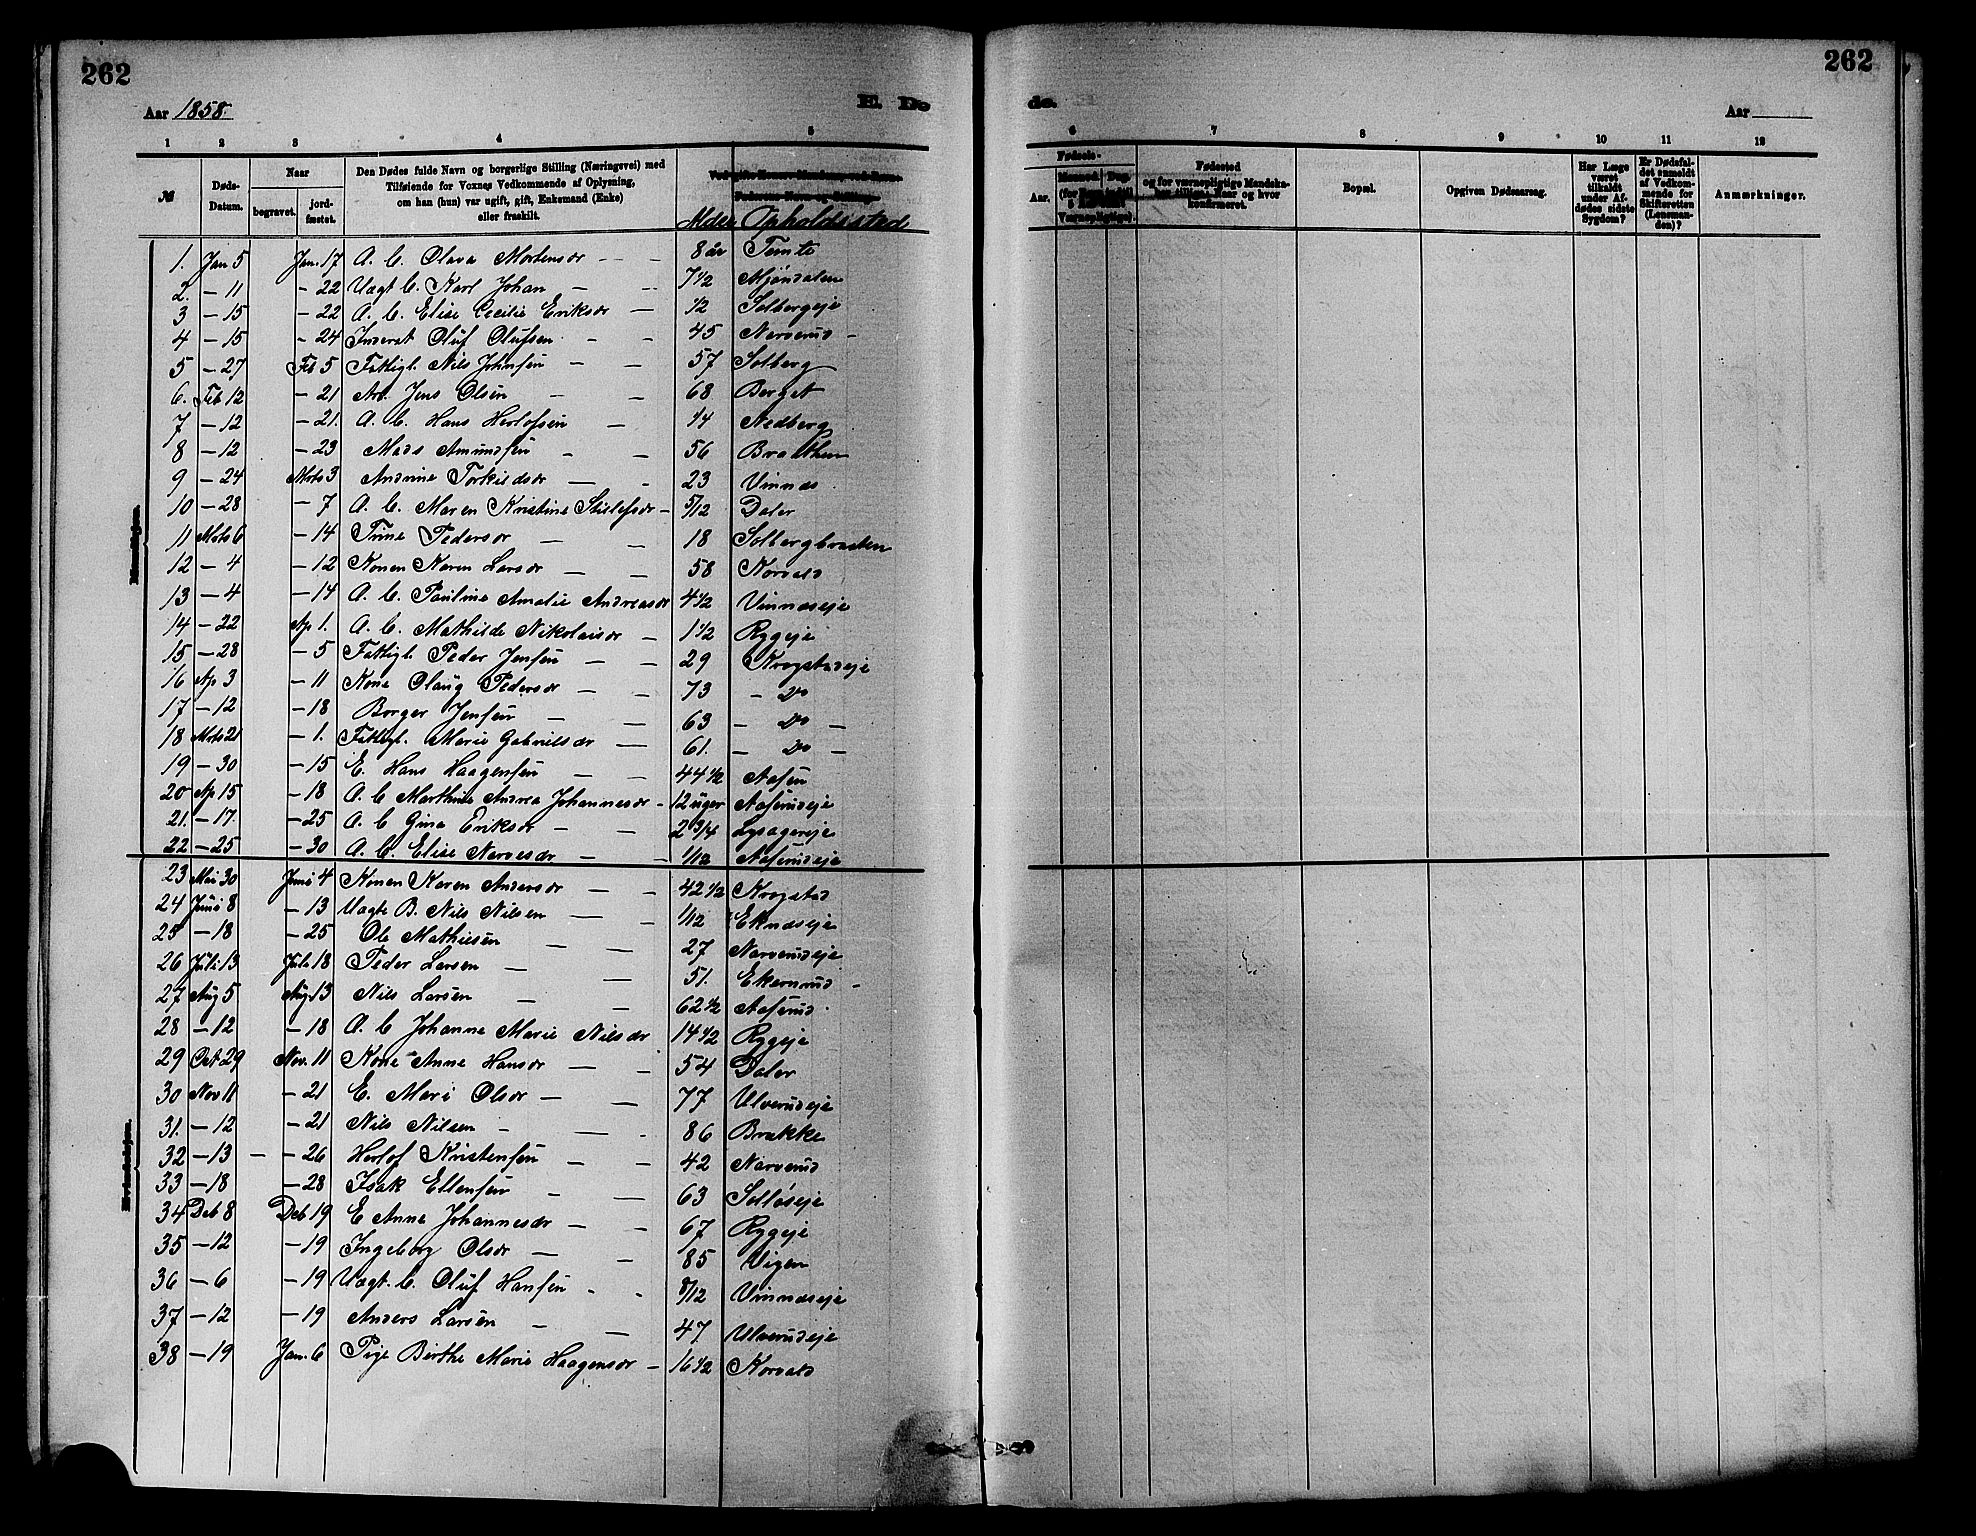 262
262
Aar 1858.
E. Dø
de.
Aar
1 2 3 4 5 6 7 8 9 10 11 12
№
Døds-Datum.
Naar
begravet.
jordfæstet.
Den Dødes fulde Navn og borgerlige Stilling (Næringsvei) med Tilføiende for Voxnes Vedkommende af Oplysning, om han (hun) var ugift, gift, Enkemand (Enke) eller fraskilt.
Alder
Opholdssted
Fødsels-
Aar.
Maaned. Dag.
Fødested
og for værnepligtige Mandskaber tillige: Naar og hvor konfirmeret.
Bopæl.
Opgiven Dødsaarsag.
Har Læge været tilkaldt under Afdødes sidste Sygdom?
Er Dødsfaldet anmeldt af Vedkommende for Skifteretten (Lensmanden)?
Anmærkninger.
Mandkjøn.
Kvindekjøn.
1. Jan 5 Jan. 17 A. C. Olava Mortensdr - - 8 år Temte
2. - 11 - 22 Uægt C. Karl Johan - - 7 1/2 Mjöndalen
3 - 15 - 22 A. C. Elise Cecilie Eriksdr - 1/2 Solbergeje
4 - 15 - 24 Inderst Oluf Olufsen - - 45 Narverud -
5 - 27 Feb 5 Fattigl. Nils Johnsen - - 57 Solberg
6. Feb 12 - 21 Arb. Jens Olsen - - 68 Berget
7 - 12 - 21. A. C. Hans Herlofsen - - 14 Nedberg
8 - 12 - 23 Mads Amundsen - - 56 Braathen
9 - 24 Mrts 3 Andrine Torkildsdr - - 23 Vinnæs
10 - 28 - 7 A. C. Maren Kristine Stillefsdr - 5/12 Daler
11 Mrts 6 - 14 Trine Pedersdr - - 18 Solbergbraaten
12 - 4 - 12 Konen Karen Larsdr - - 58 Korvald
13 - 4 - 14 A. C. Pauline Amalie Andreasdr 4 1/2 Vinnæseje
14 - 22 Ap 1. A. C. Mathilde Nikolaisdr - 1 1/2 Rygeje
15 - 28 - 5 Fattigl. Peder Jensen - - 29 Krogstadeje
16 Ap 3 - 11 Kone Olaug Pedersdr - - 73 - Do
17 - 12 - 18 Borger Jensen - - 63 - Do -
18 Mrts 21 - 1. Fattigl. Marie Gabrielsdr - 61. - Do -
19 - 30 - 15 E. Hans Haagensen - - 44 1/2 Aasen
20 Ap 15 - 18 A. C Marthine Andrea Johannesdr - 12 uger Aaserudeje
21. - 17. - 25 A. C Gina Eriksdr - - 2 3/4 Lysagereje
22 - 25 - 30 A. C. Elise Narvesdr - - 1/12 Aaserudeje
23 Mai 30 Juni 4 Konen Karen Andersdr - - 42 1/2 Krogstad
24 Juni 8 - 13 Uægte B. Nils Nilsen - - 1/12 Eknæseje
25 - 18 - 25 Ole Mathiesen - - 27 Narverudeje
26 Juli 13 Juli 18 Peder Larsen - - 51. Ekernrud -
27 Aug 5 Aug 13 Nils Larsen - - 62 1/2 Aaserud
28 - 12 - 18 A. C Johanne Marie Nilsdr 14 1/2 Rygeje
29 Oct 29 Nov. 11 Kone Anne Hansdr - - 54 Daler
30 Nov 11 - 21 E. Mari Olsdr - - 77 Ulverudeje
31. - 12 - 21 Nils Nilsen - - 86 Brække
32 - 13 - - 26 Herlof Kristensen - - 42 Narverud
33 - 18 - 28 Isak Ellensen - - 63 Solløseje
34 Deb 8 Deb 19 E Anne Johannesdr - - 67 Rygeje
35 - 12 - 19 Ingeborg Olsdr - - 85 Vigen
36 - 6 - 19 Uægt. C. Oluf Hansen - - 8/12 Vinnæseje
37 - 12 - 19 Anders Larsen - - 47 Ulverudeje
38 - 19 Jan. 6 Pige Birthe Marie Haagensdr - 16 1/2 Korvald